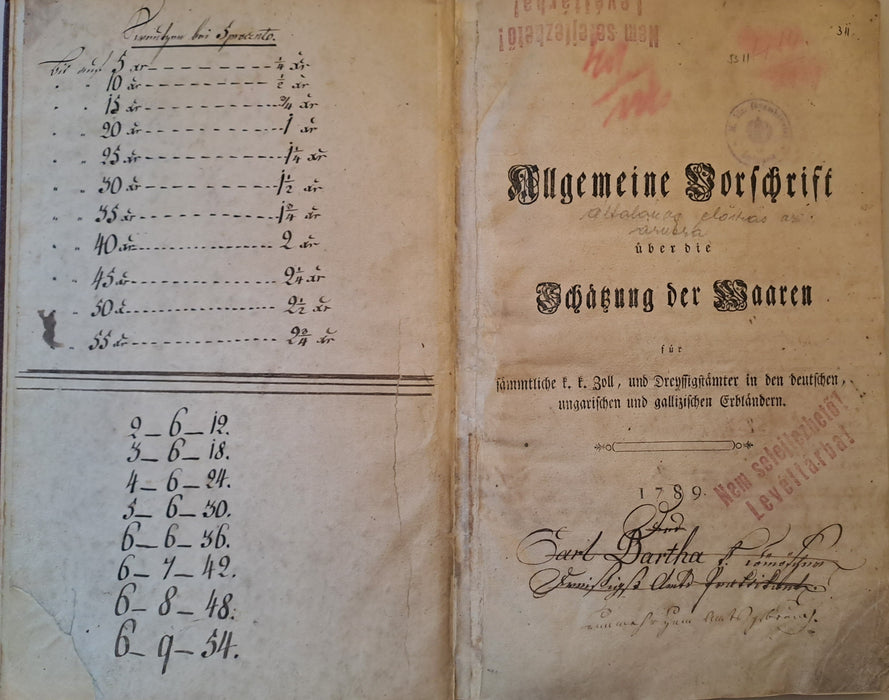 bei 5 procento.
bis auf 5 xr — ¼ xr
" " 10 xr — ½ xr
" " 15 xr — ¾ xr
" " 20 xr — 1 xr
" " 25 xr — 1¼ xr
" " 30 xr — 1½ xr
" " 35 xr — 1¾ xr
" " 40 xr — 2 xr
" " 45 xr — 2¼ xr
" " 50 xr — 2½ xr
" " 55 xr — 2¾ xr
2 — 6 — 12.
3 — 6 — 18.
4 — 6 — 24.
5 — 6 — 30.
6 — 6 — 36.
6 — 7 — 42.
6 — 8 — 48.
6 — 9 — 54.
Nem selejtezhető!
Levéltárba!
311
5311
Allgemeine Vorschrift
előírás az
árukra
über die
Schätzung der Waaren
für
sämmtliche k. k. Zoll, und Dreyssigstämter in den deutschen,
ungarischen und gallizischen Erbländern.
Nem selejtezhető!
Levéltárba!
1789.
Carl Bartha
Amts Praktikant
nunmehr zum Amtsgebrauch.